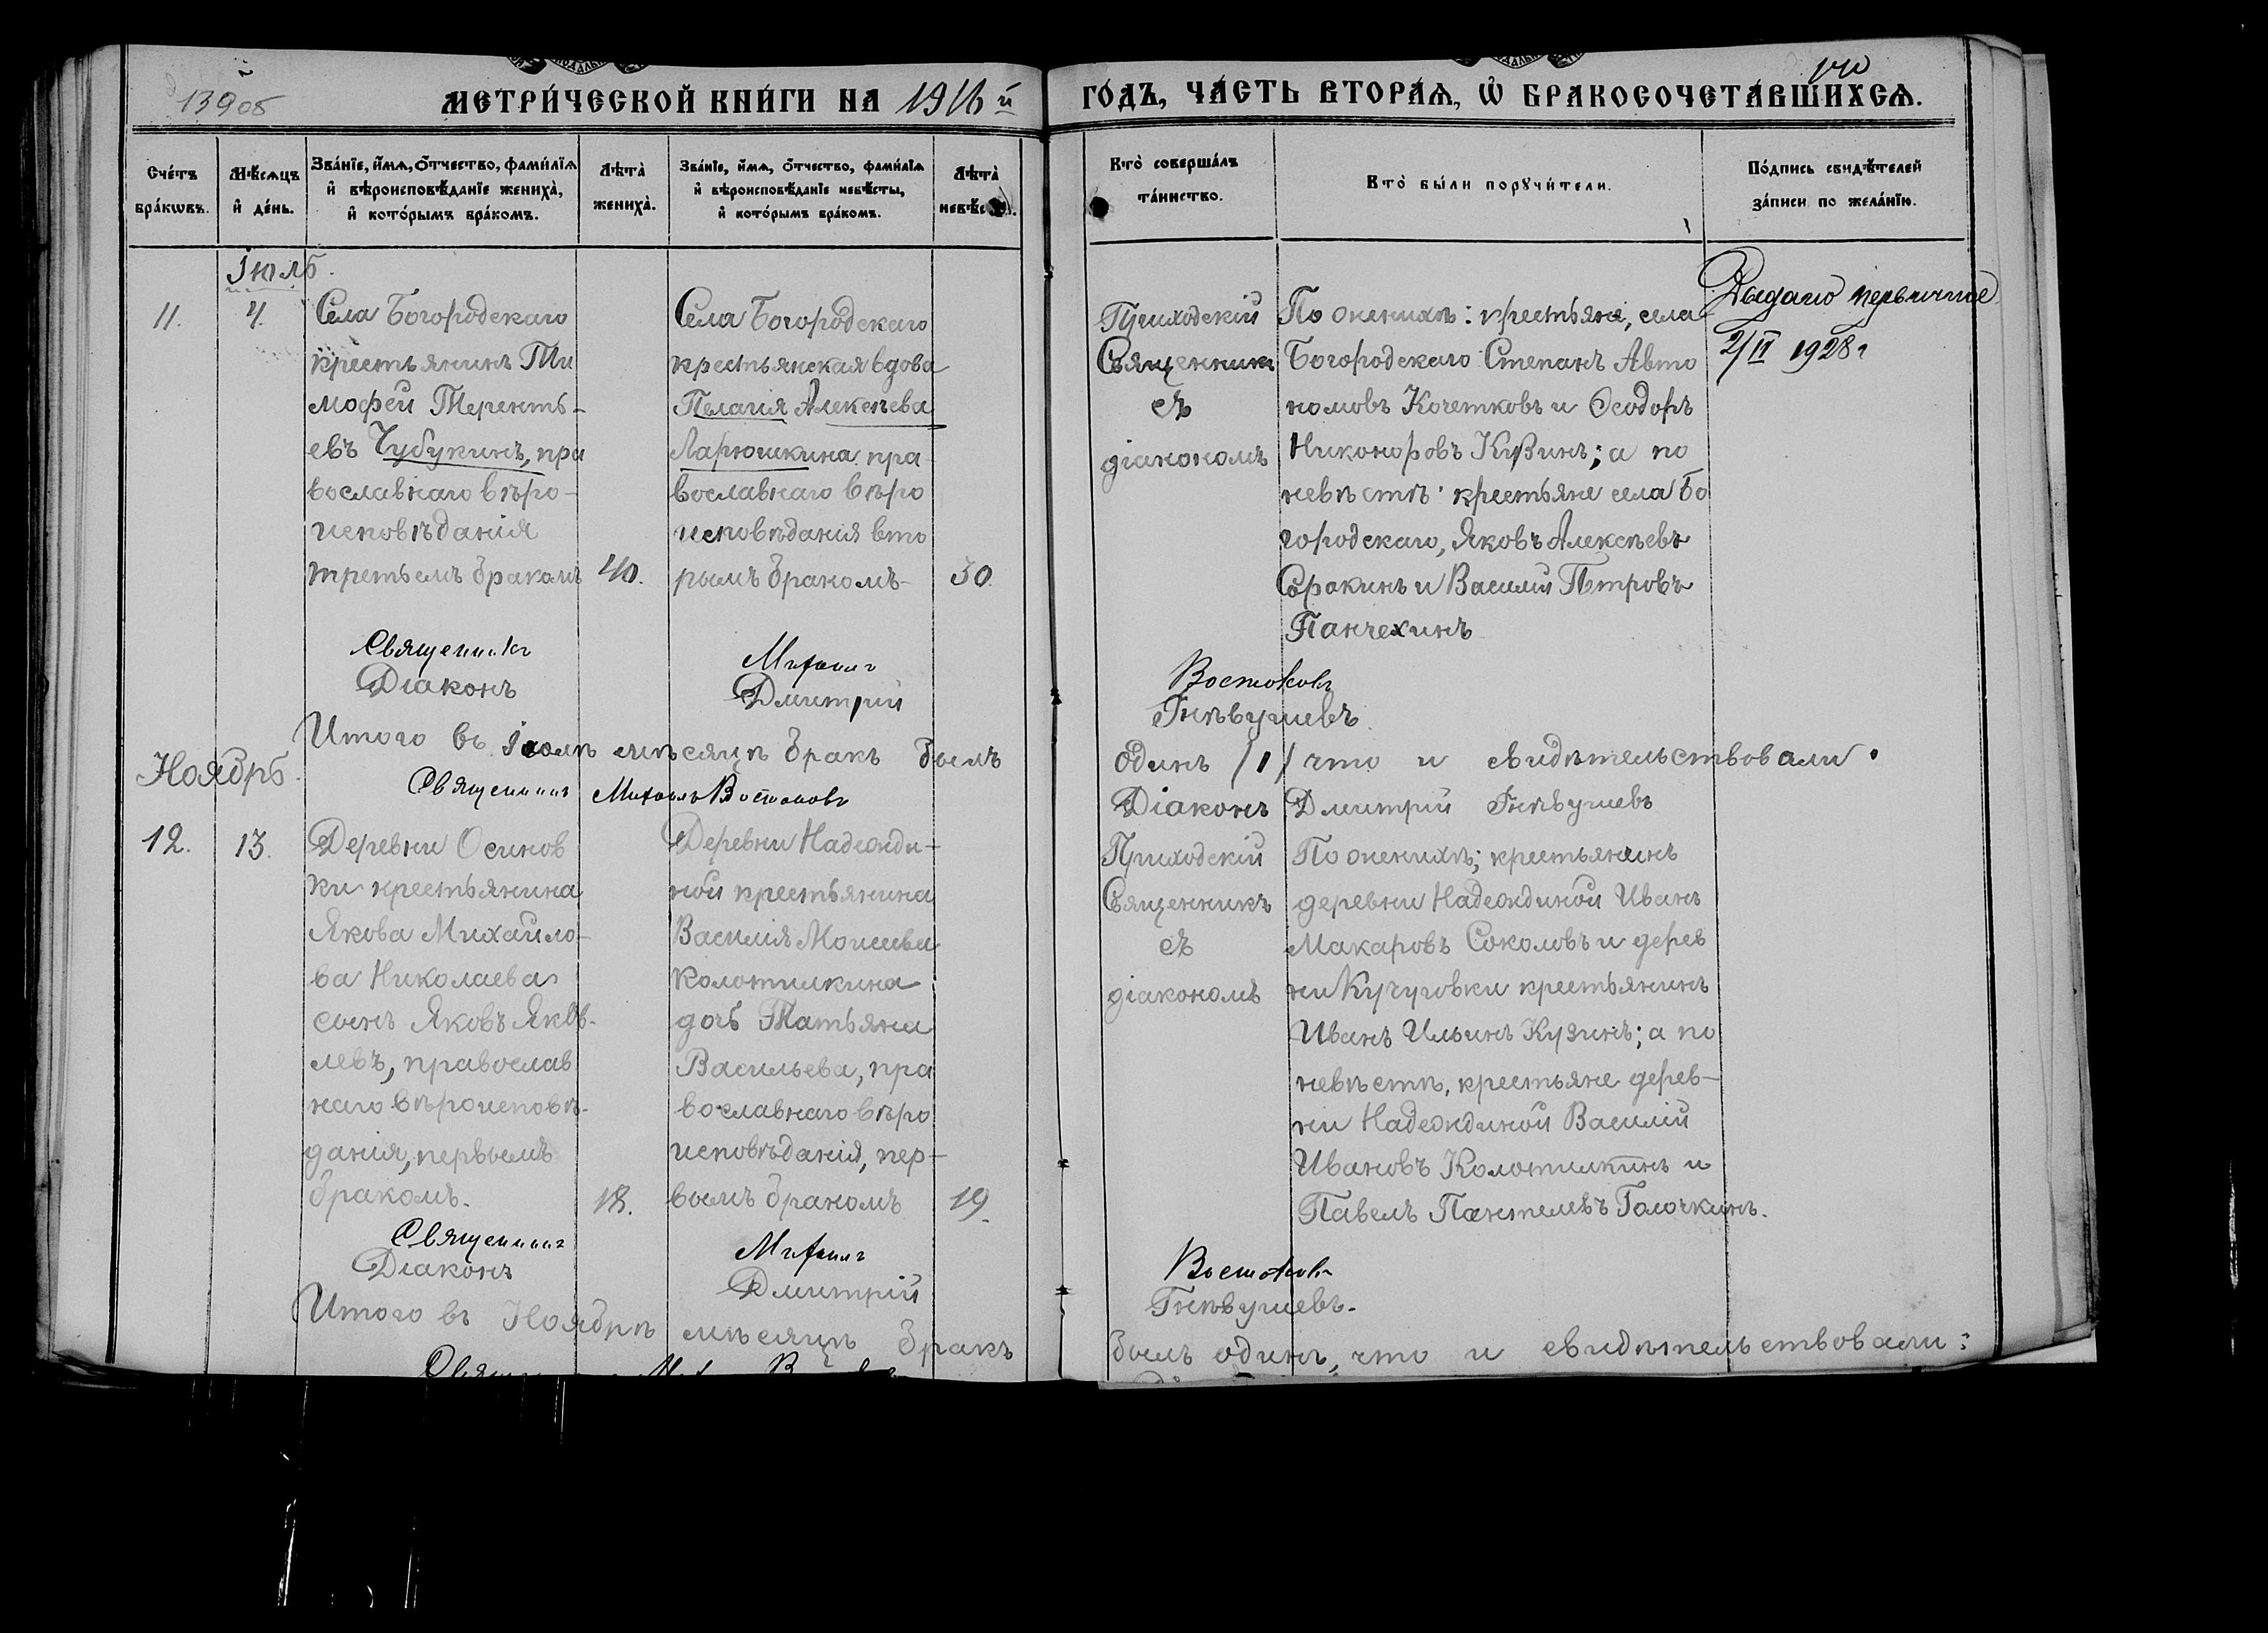 139об
МЕТРИ́ЧЕСКОЙ КНИ́ГИ НА 1916й ГО́ДЪ, ЧА́СТЬ ВТОРА́Ѧ, Ѡ҆ БРАКОСОЧЕТА́ВШИХСѦ.
Сче́тъ бра́кѡвъ.
Мѣ́сѧцъ и҆ де́нь.
Зва́нїе, и҆́мѧ, ѻ҆́тчество, фами́лїѧ и҆ вѣроисповѣ́данїе жениха̀, и҆ кото́рымъ бра́комъ.
Лѣ́та̀ жениха̀.
Зва́нїе, и҆́мѧ, ѻ҆́тчество, фами́лїѧ и҆ вѣроисповѣ́данїе невѣ́сты, и҆ кото́рымъ бра́комъ.
Лѣ́та̀
Кто̀ соверша́лъ та́инство.
Кто̀ бы́ли порꙋчи́тели.
По́дпись свидѣ́телей за́писи по жела́нїю.
Іюль.
11.
4.
Села Богородскаго
крестьянинъ Ти
мофей Теренть-
евъ Чубукинъ, пра
вославнаго вѣро-
исповѣданія
третьемъ бракомъ
40.
Села Богородскаго
крестьянская вдова
Пелагия Алексѣева
Ларюшкина пра
вославнаго вѣро
исповѣданія вто
рымъ бракомъ-
30.
Приходскій
Священникъ
съ
діакономъ
По женихѣ: крестьяне, села
Богородскаго Степанъ Авто
номовъ Кочетковъ и Ѳеодоръ
Никоноровъ Кузинъ; а по
невѣстѣ: крестьяне села Бо
городскаго, Яковъ Алексѣевъ
Сорокинъ и Василій Петровъ
Панчехинъ
Выдано первичное
2/II 1928г
Священникъ Михаилъ Востоковъ
Діаконъ Дмитрій Гнѣвушевъ.
Итого въ Іюлѣ мѣсяцѣ бракъ былъ одинъ /1/ что и свидѣтельствовали:
Священникъ Михаилъ Востоковъ
Діаконъ Дмитрій Гнѣвушевъ
Ноябрь.
12.
13.
Деревни Осинов
ки крестьянина
Якова Михайло-
ва Николаева
сынъ Яковъ Яков-
левъ, православ
наго вѣроисповѣ-
данія, первымъ
бракомъ.
18.
Деревни Надежди-
ной крестьянина
Василія Моисеева
Колотилкина
дочь Татьяна
Васильева, пра
вославнаго вѣро
исповѣданія, пер-
вымъ бракомъ
19.
Приходскій
Священникъ
съ
діакономъ
По женихѣ; крестьянинъ
деревни Надеждиной Иванъ
Макаровъ Соколовъ и дерев
ни Кучуговки крестьянинъ
Иванъ Ильинъ Кузинъ; а по
невѣстѣ, крестьяне дерев-
ни Надеждиной Василій
Ивановъ Колотилкинъ и
Павелъ Пантелевъ Голочкинъ.
Священникъ Михаилъ Востоковъ
Діаконъ Дмитрій Гнѣвушевъ.
Итого въ Ноябрѣ мѣсяцѣ бракъ былъ одинъ, что и свидѣтельствовали: